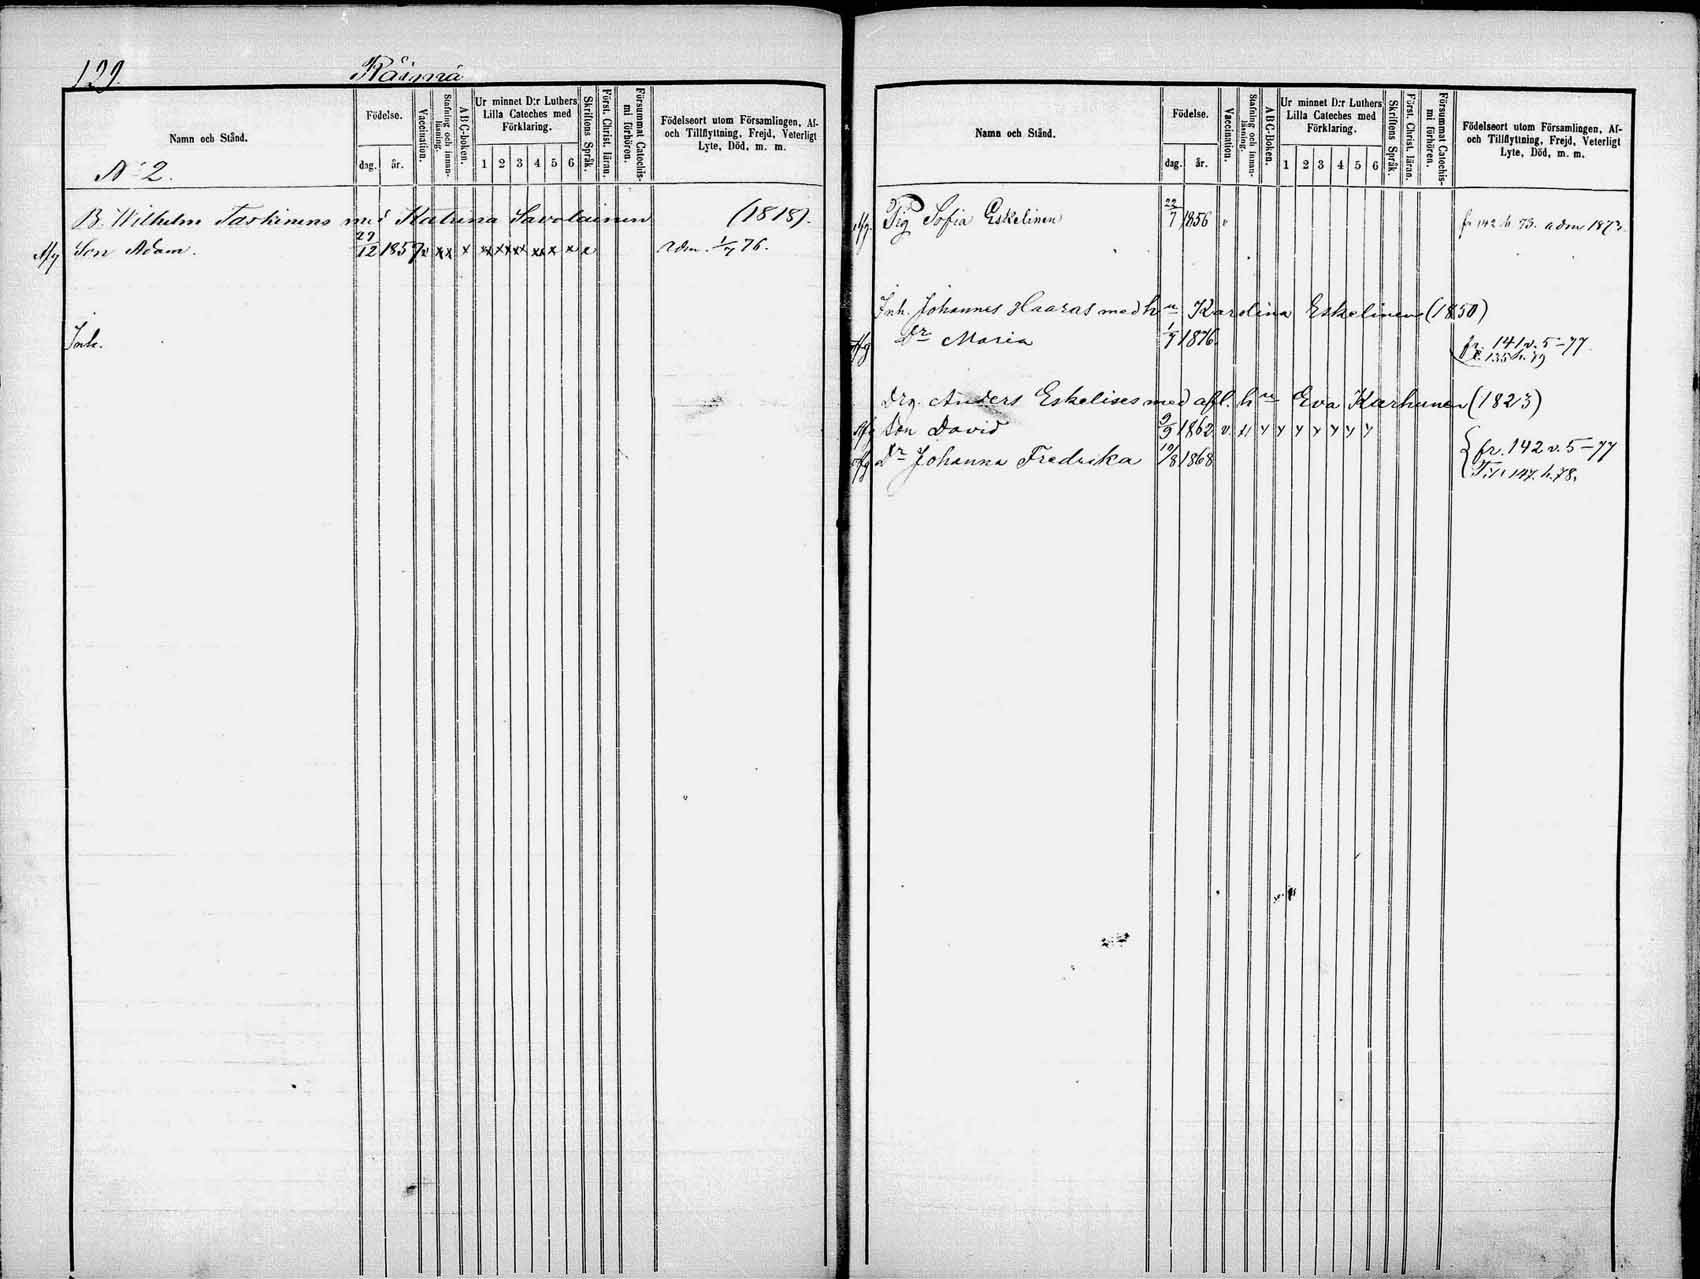 129.
Räimä
Namn och Stånd.
Födelse.
dag.
år.
Vaccination.
Stafning och innan-läsning.
A B C-boken.
Ur minnet D:r Luthers
Lilla Cateches med
Förklaring.
1 2 3 4 5 6
Skriftens Språk.
Först. Christ. läran.
Försummat Catechis-mi förhören.
Födelseort utom Församlingen, Af-
och Tillflyttning, Frejd, Veterligt
Lyte, Död, m. m.
No 2.
B. Wilhelm Taskinens med Katrina Savolainen (1818).
Afg Son Adam. 29/12 1857 v xx x xx xx xx xx x x x adm. 1/7 76.
Inh.
Namn och Stånd.
Födelse.
dag.
år.
Vaccination.
Stafning och innan-läsning.
A B C-boken.
Ur minnet D:r Luthers
Lilla Cateches med
Förklaring.
1 2 3 4 5 6
Skriftens Språk.
Först. Christ. läran.
Försummat Catechis-mi förhören.
Födelseort utom Församlingen, Af-
och Tillflyttning, Frejd, Veterligt
Lyte, Död, m. m.
Afg. Pig Sofia Eskelinen 22/7 1856 v fr 142 h. 73. adm 1873.
Inh. Johannes Haaras med hu Karolina Eskelinen (1850)
Afg Dr Maria 1/7 1876. fr. 141 v. 5-77.
t. 135 h. 79
Drg. Anders Eskelises med afl. hu Eva Karhunen (1823)
Afg Son David 9/9 1862 v. x y y y y y y y
Afg Dr Johanna Fredrika 10/8 1868 fr. 142 v. 5-77
Till 147. h. 78.